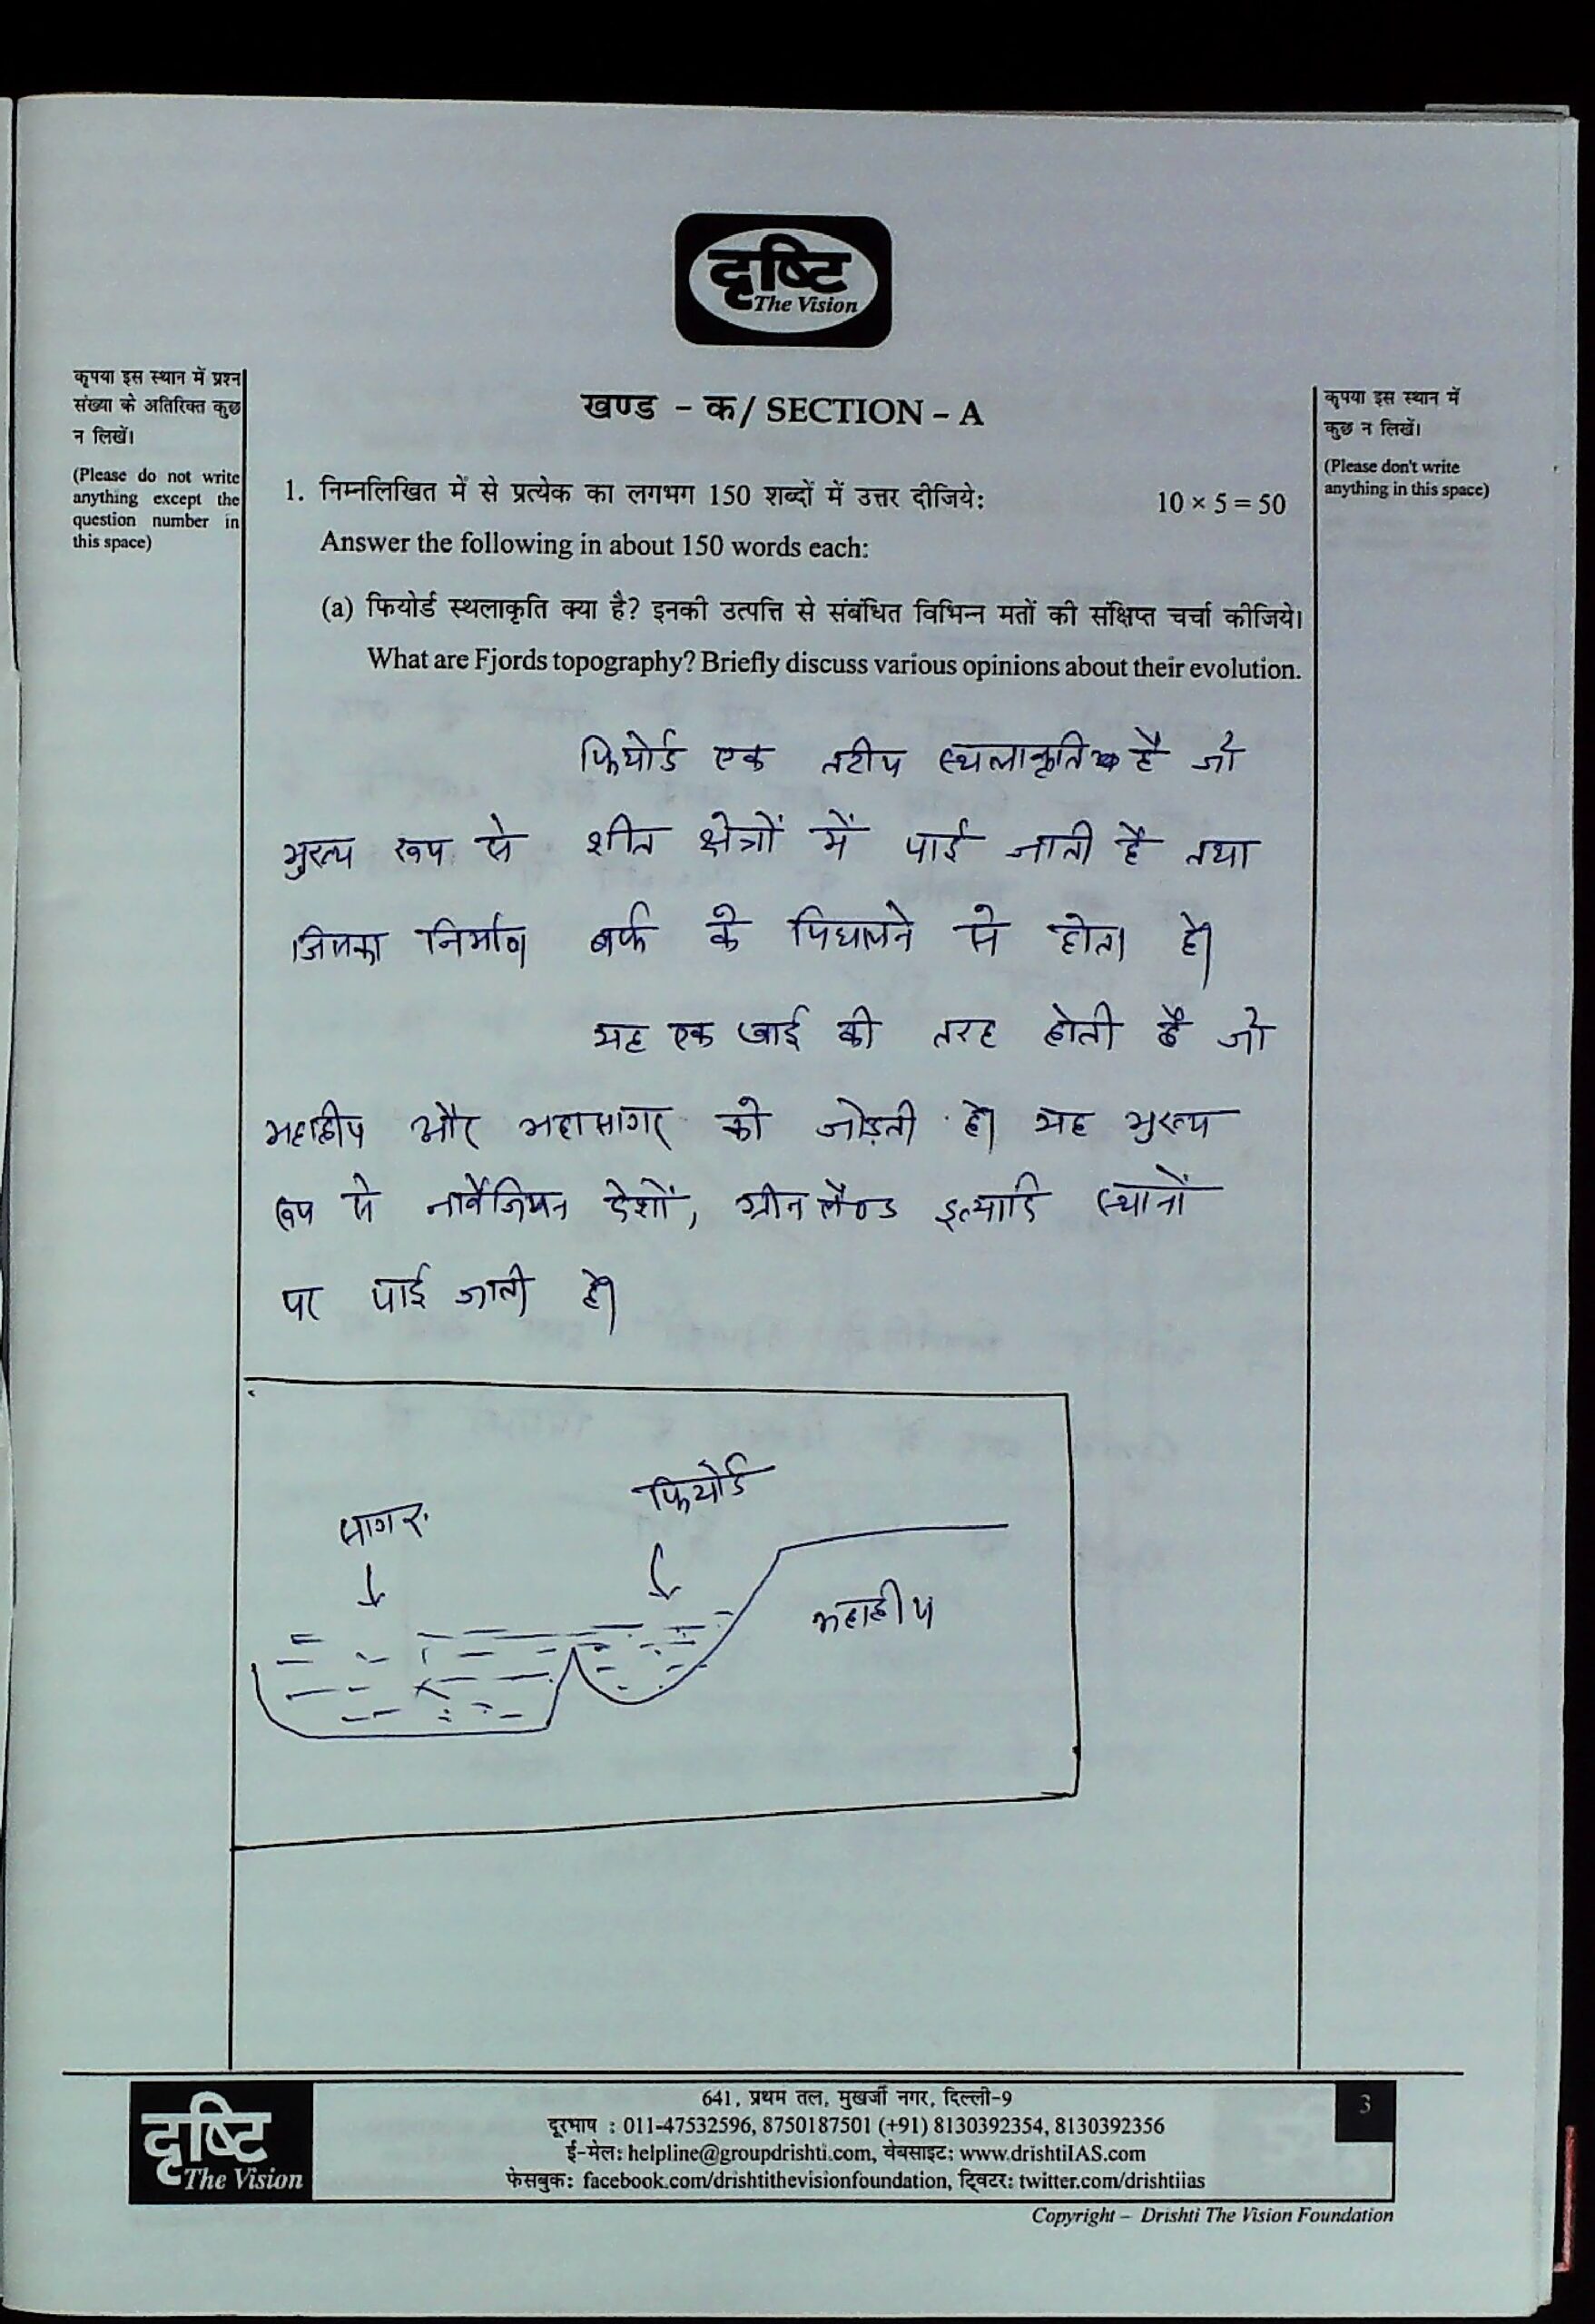 दृष्टि
The Vision
कृपया इस स्थान में प्रश्न
संख्या के अतिरिक्त कुछ
न लिखें।
(Please do not write
anything except the
question number in
this space)
खण्ड - क/ SECTION – A
कृपया इस स्थान में
कुछ न लिखें।
(Please don't write
anything in this space)
1. निम्नलिखित में से प्रत्येक का लगभग 150 शब्दों में उत्तर दीजिये: 10 × 5 = 50
Answer the following in about 150 words each:
(a) फियोर्ड स्थलाकृति क्या है? इनकी उत्पत्ति से संबंधित विभिन्न मतों की संक्षिप्त चर्चा कीजिये।
What are Fjords topography? Briefly discuss various opinions about their evolution.
फियोर्ड एक तटीय स्थलाकृति है जो
मुख्य रूप से शीत क्षेत्रों में पाई जाती है तथा
जिसका निर्माण बर्फ के पिघलने से होता है।
यह एक खाई की तरह होती है जो
महाद्वीप और महासागर को जोड़ती है। यह मुख्य
रूप से नार्वेजियन देशों, ग्रीनलैण्ड इत्यादि स्थानों
पर पाई जाती है।
फियोर्ड
सागर
महाद्वीप
दृष्टि
The Vision
641, प्रथम तल, मुखर्जी नगर, दिल्ली-9
दूरभाष : 011-47532596, 8750187501 (+91) 8130392354, 8130392356
ई-मेल: helpline@groupdrishti.com, वेबसाइट: www.drishtiIAS.com
फेसबुक: facebook.com/drishtithevisionfoundation, ट्विटर: twitter.com/drishtiias
3
Copyright – Drishti The Vision Foundation